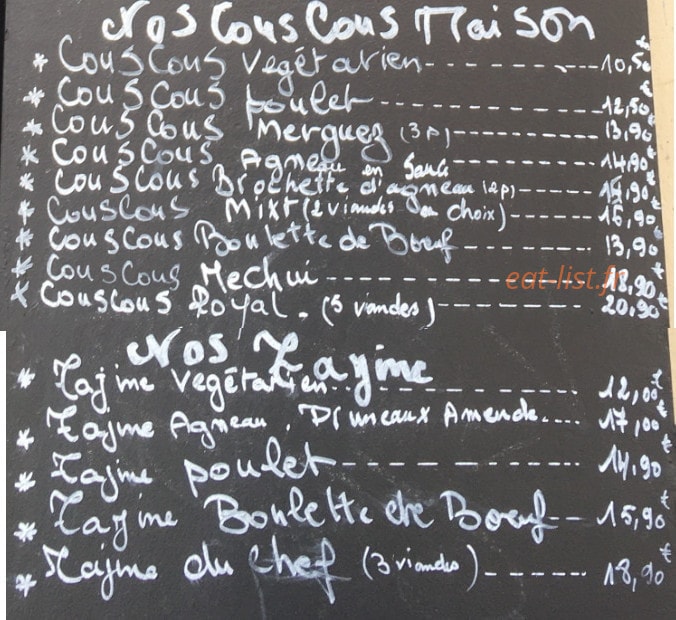 Nos CousCous Maison
* CousCous végétarien ---------- 10,50€
* CousCous poulet ---------- 12,50€
* CousCous Merguez (3p) ---------- 13,90€
* CousCous Agneau en Sauce ---------- 14,90€
* CousCous Brochette d'agneau (2p) ------ 15,90€
* CousCous Mixt (2 viandes au choix) ------ 15,90€
* CousCous Boulette de Bœuf ------ 13,90€
* CousCous Mechui ---------- 18,90€
eat-list.fr
* CousCous Royal. (5 viandes) ---------- 20,90€
Nos Tagine
* Tajine végétarien ---------- 12,00€
* Tajme Agneau. Pruneaux Amende.... 17,00€
* Tajine poulet ---------- 14,90€
* Tagine Boulette de Bœuf --- 15,90€
* Tajine du chef (3 viandes) ------- 18,90€